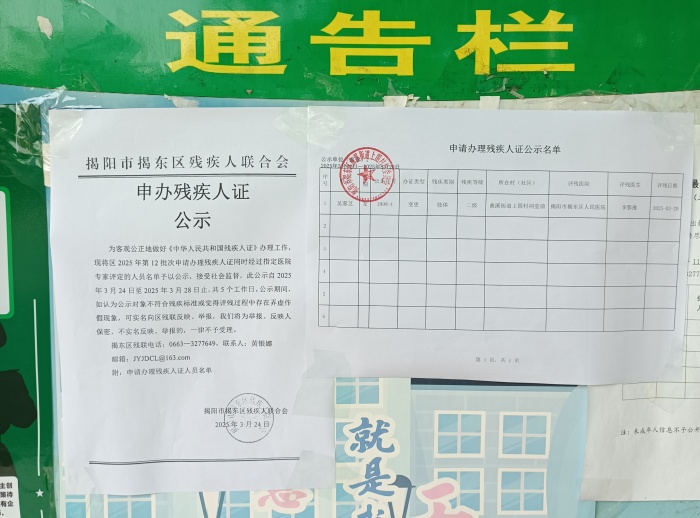 通告栏
揭阳市揭东区残疾人联合会
申办残疾人证
公示
为客观公正地做好《中华人民共和国残疾人证》办理工作，
现将区 2025 年第 12 批次申请办理残疾人证同时经过指定医院
专家评定的人员名单予以公示，接受社会监督，此公示自 2025
年 3 月 24 日至 2025 年 3 月 28 日止，共 5 个工作日。公示期间，
如认为公示对象不符合残疾标准或觉得评残过程中存在弄虚作
假现象，可实名向区残联反映、举报，我们将为举报、反映人
保密，不实名反映、举报的，一律不予受理。
揭东区残联电话：0663—3277649，联系人：黄银娜
邮箱：JYJDCL@163.com
附：申请办理残疾人证人员名单
揭阳市揭东区残疾人联合会
2025 年 3 月 24 日
申请办理残疾人证公示名单
公示单位
序号 办证类型 残疾类别 残疾等级 所在村（社区） 评残医院 评残医生 评残日期
1 变更 肢体 二级 揭阳市揭东区人民医院
2
3
4
5
6
第 1 页，共 1 页
注：未成年人信息不予公开
就是